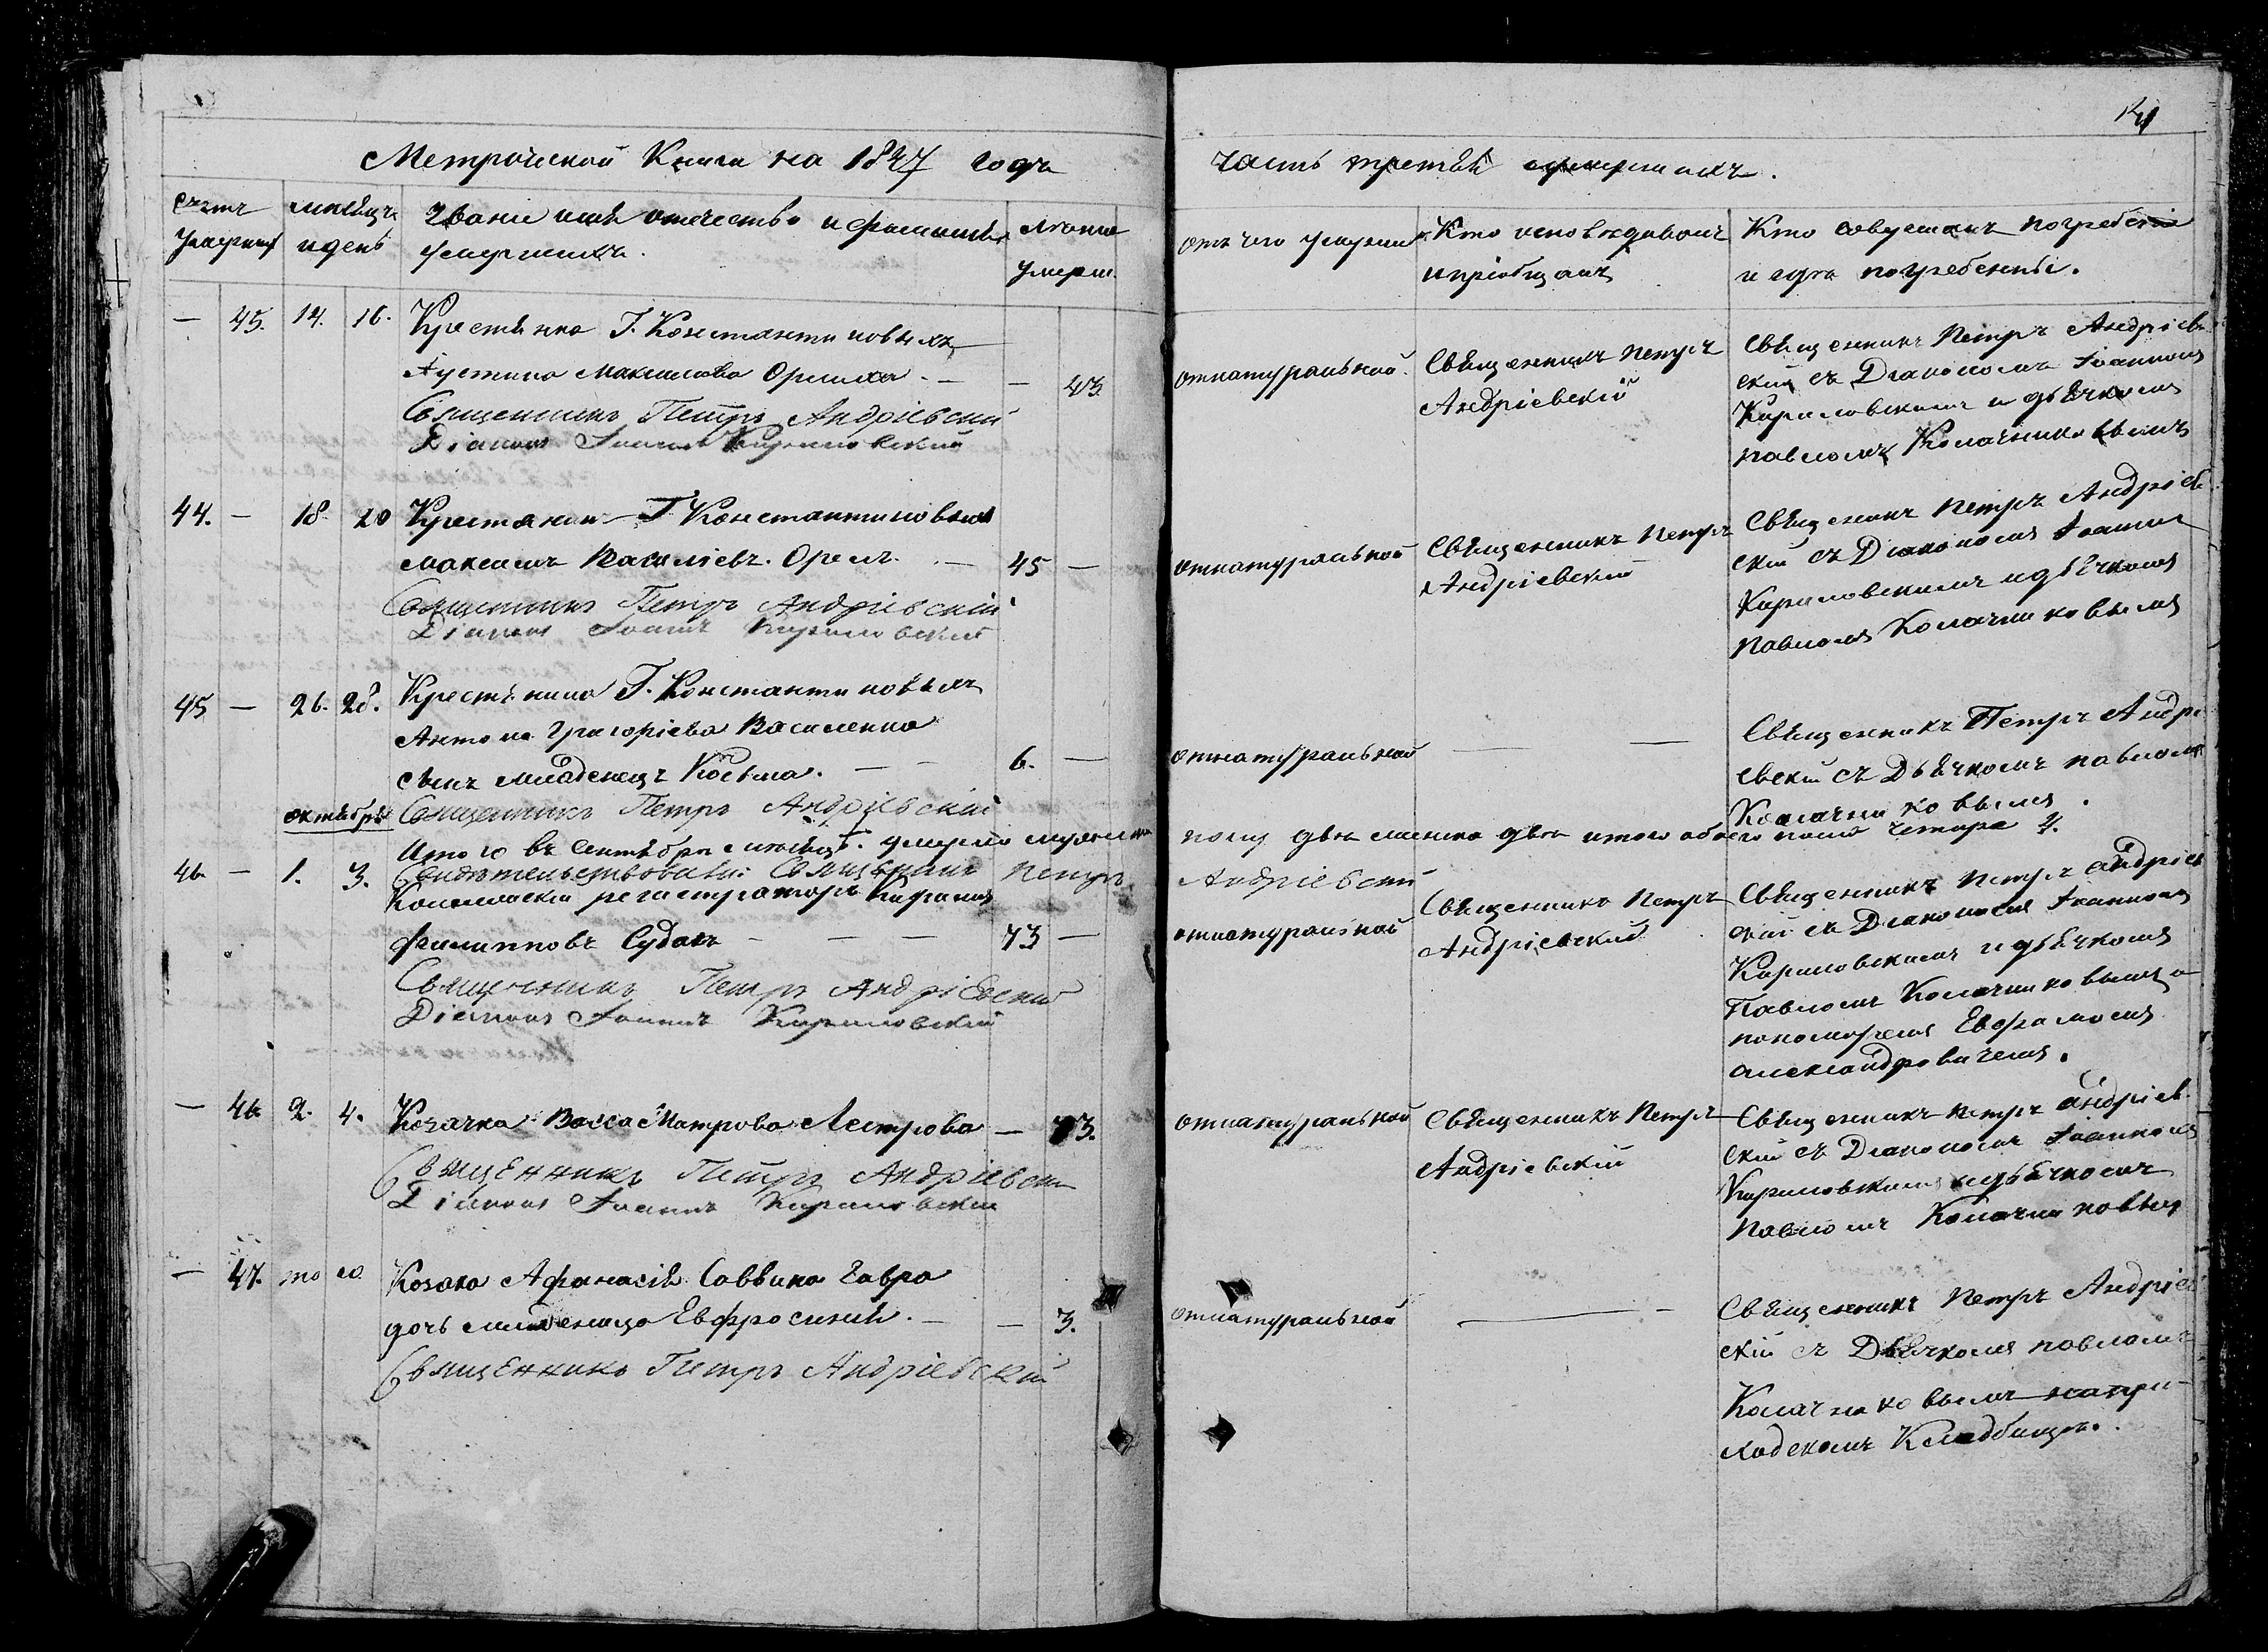 Метрической Книги на 1847 годъ
часть третья о умершихъ.
счетъ умершихъ
мѣсяцъ и день
Званіе имя отечество и фамилія умершихъ.
лѣта умерш.
отъ чего умерли
Кто исповѣдывалъ и пріобщалъ
Кто совершалъ погребеніе и гдѣ погребенны.
— 45. 14. 16. Крестьянка Г. Константиновыхъ
Устина Максимова Орлиха — — 43
Священникъ Петръ Андріевскій
Діаконъ Іоаннъ Кириловскій
отнатуральной
Священникъ Петръ
Андріевскій
Священникъ Петръ Андріев
скій съ Діакономъ Іоанномъ
Кириловскимъ и дьячкомъ
Павломъ Колачниковымъ
44. — 18. 20 Крестянин Г Константиновыхъ
Максимъ Василіевъ Орелъ — 45 —
Священникъ Петръ Андріевскій
Діаконъ Іоаннъ Кириловскій
отнатуральной
Священникъ Петръ
Андріевскій
Священникъ Петръ Андріев
скій съ Діакономъ Іоанном
Кириловскимъ и дьячкомъ
Павломъ Колачниковымъ
45 — 26. 28. Крестьянина Г. Константиновыхъ
Антона Григоріева Василенка
сынъ младенецъ Козьма. — — 6. —
Священникъ Петръ Андріевскій
отнатуральной — —
Священникъ Петръ Андрі
евскій съ Дьячкомъ Павломъ
Колачниковымъ.
Итого въ Сентябрѣ мѣсяцѣ умерло мужеска полу два женска два итого обоего пола четыре 4.
Свидѣтельствовалъ: Священникъ Петръ Андріевскій
октябрь
46. — 1. 3. Колежскій регистраторъ
Филипповъ Судакъ — — — 73 —
Священникъ Петръ Андріевскій
Діаконъ Іоаннъ Кириловскій
отнатуральной
Священникъ Петръ
Андріевскій
Священникъ Петръ Андріев
скій съ Діакономъ Іоанномъ
Кириловскимъ и дьячкомъ
Павломъ Колачниковымъ и
пономаремъ
Александровичемъ.
— 46. 2. 4. Козачка Васса — 73.
Священникъ Петръ Андріевскій
Діаконъ Іоаннъ Кириловскій
отнатуральной
Священникъ Петръ
Андріевскій
Священникъ Петръ Андріев
скій съ Діакономъ Іоанномъ
Кириловскимъ и дьячкомъ
Павломъ Колачниковым
— 47. то го Козака Афанасія Саввина Гавра
дочь младеница Евфросинія. — — 3.
Священникъ Петръ Андріевскій
отнатуральной —
Священникъ Петръ Андріев
скій съ Дьячкомъ Павломъ
Колачниковымъ на при
ходскомъ Кладбищѣ.